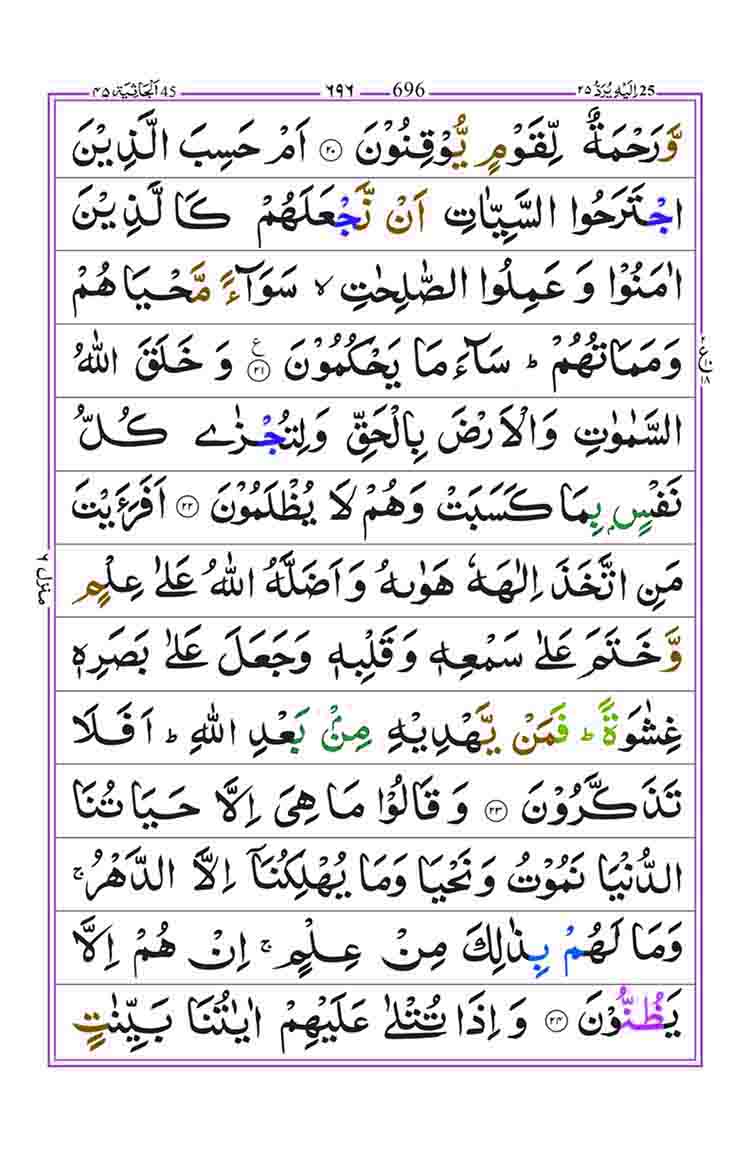 اِلَيْهِ يُرَدُّ ٢٥ 25 696 ٦٩٦ اَلْجَاثِيَة ٤٥ 45
وَّرَحْمَةٌ لِّقَوْمٍ يُّوْقِنُوْنَ ۝٢٠ اَمْ حَسِبَ الَّذِيْنَ
اجْتَرَحُوا السَّيِّاٰتِ اَنْ نَّجْعَلَهُمْ كَالَّذِيْنَ
اٰمَنُوْا وَعَمِلُوا الصّٰلِحٰتِ ۙ سَوَآءً مَّحْيَاهُمْ
وَمَمَاتُهُمْ ؕ سَآءَ مَا يَحْكُمُوْنَ ۝٢١ ع وَخَلَقَ اللّٰهُ
السَّمٰوٰتِ وَالْاَرْضَ بِالْحَقِّ وَلِتُجْزٰى كُلُّ
نَفْسٍۭ بِمَا كَسَبَتْ وَهُمْ لَا يُظْلَمُوْنَ ۝٢٢ اَفَرَءَيْتَ
مَنِ اتَّخَذَ اِلٰهَهٗ هَوٰىهُ وَاَضَلَّهُ اللّٰهُ عَلٰى عِلْمٍ
وَّخَتَمَ عَلٰى سَمْعِهٖ وَقَلْبِهٖ وَجَعَلَ عَلٰى بَصَرِهٖ
غِشٰوَةً ؕ فَمَنْ يَّهْدِيْهِ مِنْۢ بَعْدِ اللّٰهِ ؕ اَفَلَا
تَذَكَّرُوْنَ ۝٢٣ وَقَالُوْا مَا هِىَ اِلَّا حَيَاتُنَا
الدُّنْيَا نَمُوْتُ وَنَحْيَا وَمَا يُهْلِكُنَاۤ اِلَّا الدَّهْرُ ۚ
وَمَا لَهُمْ بِذٰلِكَ مِنْ عِلْمٍ ۚ اِنْ هُمْ اِلَّا
يَظُنُّوْنَ ۝٢٤ وَاِذَا تُتْلٰى عَلَيْهِمْ اٰيٰتُنَا بَيِّنٰتٍ
ع ٢ ١٠ ١٨
منزل ٦